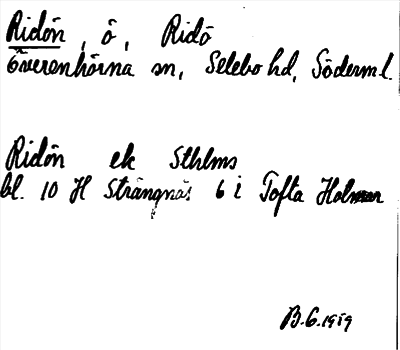 Ridön, ö, Ridö
Överenhörna sn, Selebo hd, Söderml.
Ridön ek Sthlms
bl. 10 H Strängnäs 6 i Tofta Holmar
B.G. 1959